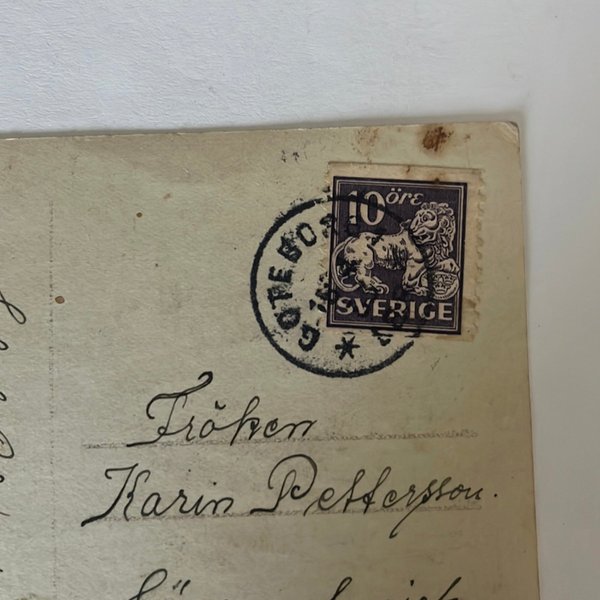 10 ÖRE
SVERIGE
GÖTEBORG
Fröken
Karin Pettersson.